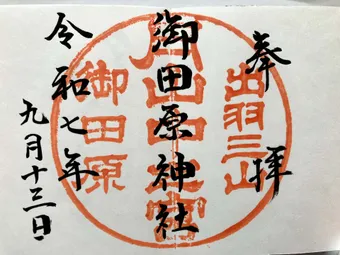 奉拝
出羽三山
御田原神社
御田原
令和七年
九月十三日